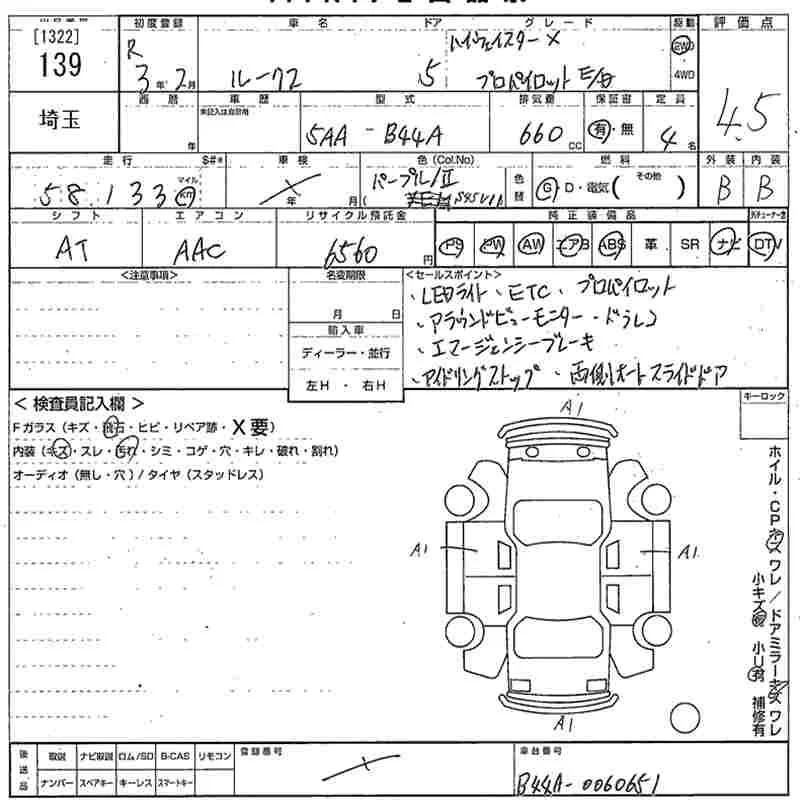 初度登録 車名 ドア グレード 駆動 評価点
[1322]
139
R
3年2月
ルークス
5
ハイウェイスター X
プロパイロット E/G
2WD
4WD
4.5
埼玉
西暦 車歴 型式 排気量 保証書 定員
未記入は自家用
年
5AA - B44A
660 cc
有・無
4名
走行 S#* 車検 色(Col.No) 燃料 外装 内装
58,133
マイル
年 月
パープル/II
色替
G・D・電気( その他 )
B B
シフト エアコン リサイクル預託金 純正装備品
AT AAC 6560円
PS PW AW エアB ABS 革 SR ナビ DTV
<注意事項> 名変期限 <セールスポイント>
月 日
・LEDライト・ETC・プロパイロット
・アラウンドビューモニター・ドラレコ
・エマージェンシーブレーキ
・アイドリングストップ・両側オートスライドドア
輸入車
ディーラー・並行
左H・右H
キーロック
<検査員記入欄>
Fガラス(キズ・飛石・ヒビ・リペア跡・X要)
内装(キズ・スレ・汚れ・シミ・コゲ・穴・キレ・破れ・割れ)
オーディオ(無し・穴)/タイヤ(スタッドレス)
A1
A1
A1
A1
ホイル・CPキズ ワレ/ドアミラーキズ ワレ
小キズ有 小U有 補修有
後送品
取説 ナビ取説 ロム/SD B-CAS リモコン
ナンバー スペアキー キーレス スマートキー
登録番号
車台番号
B44A-0060651